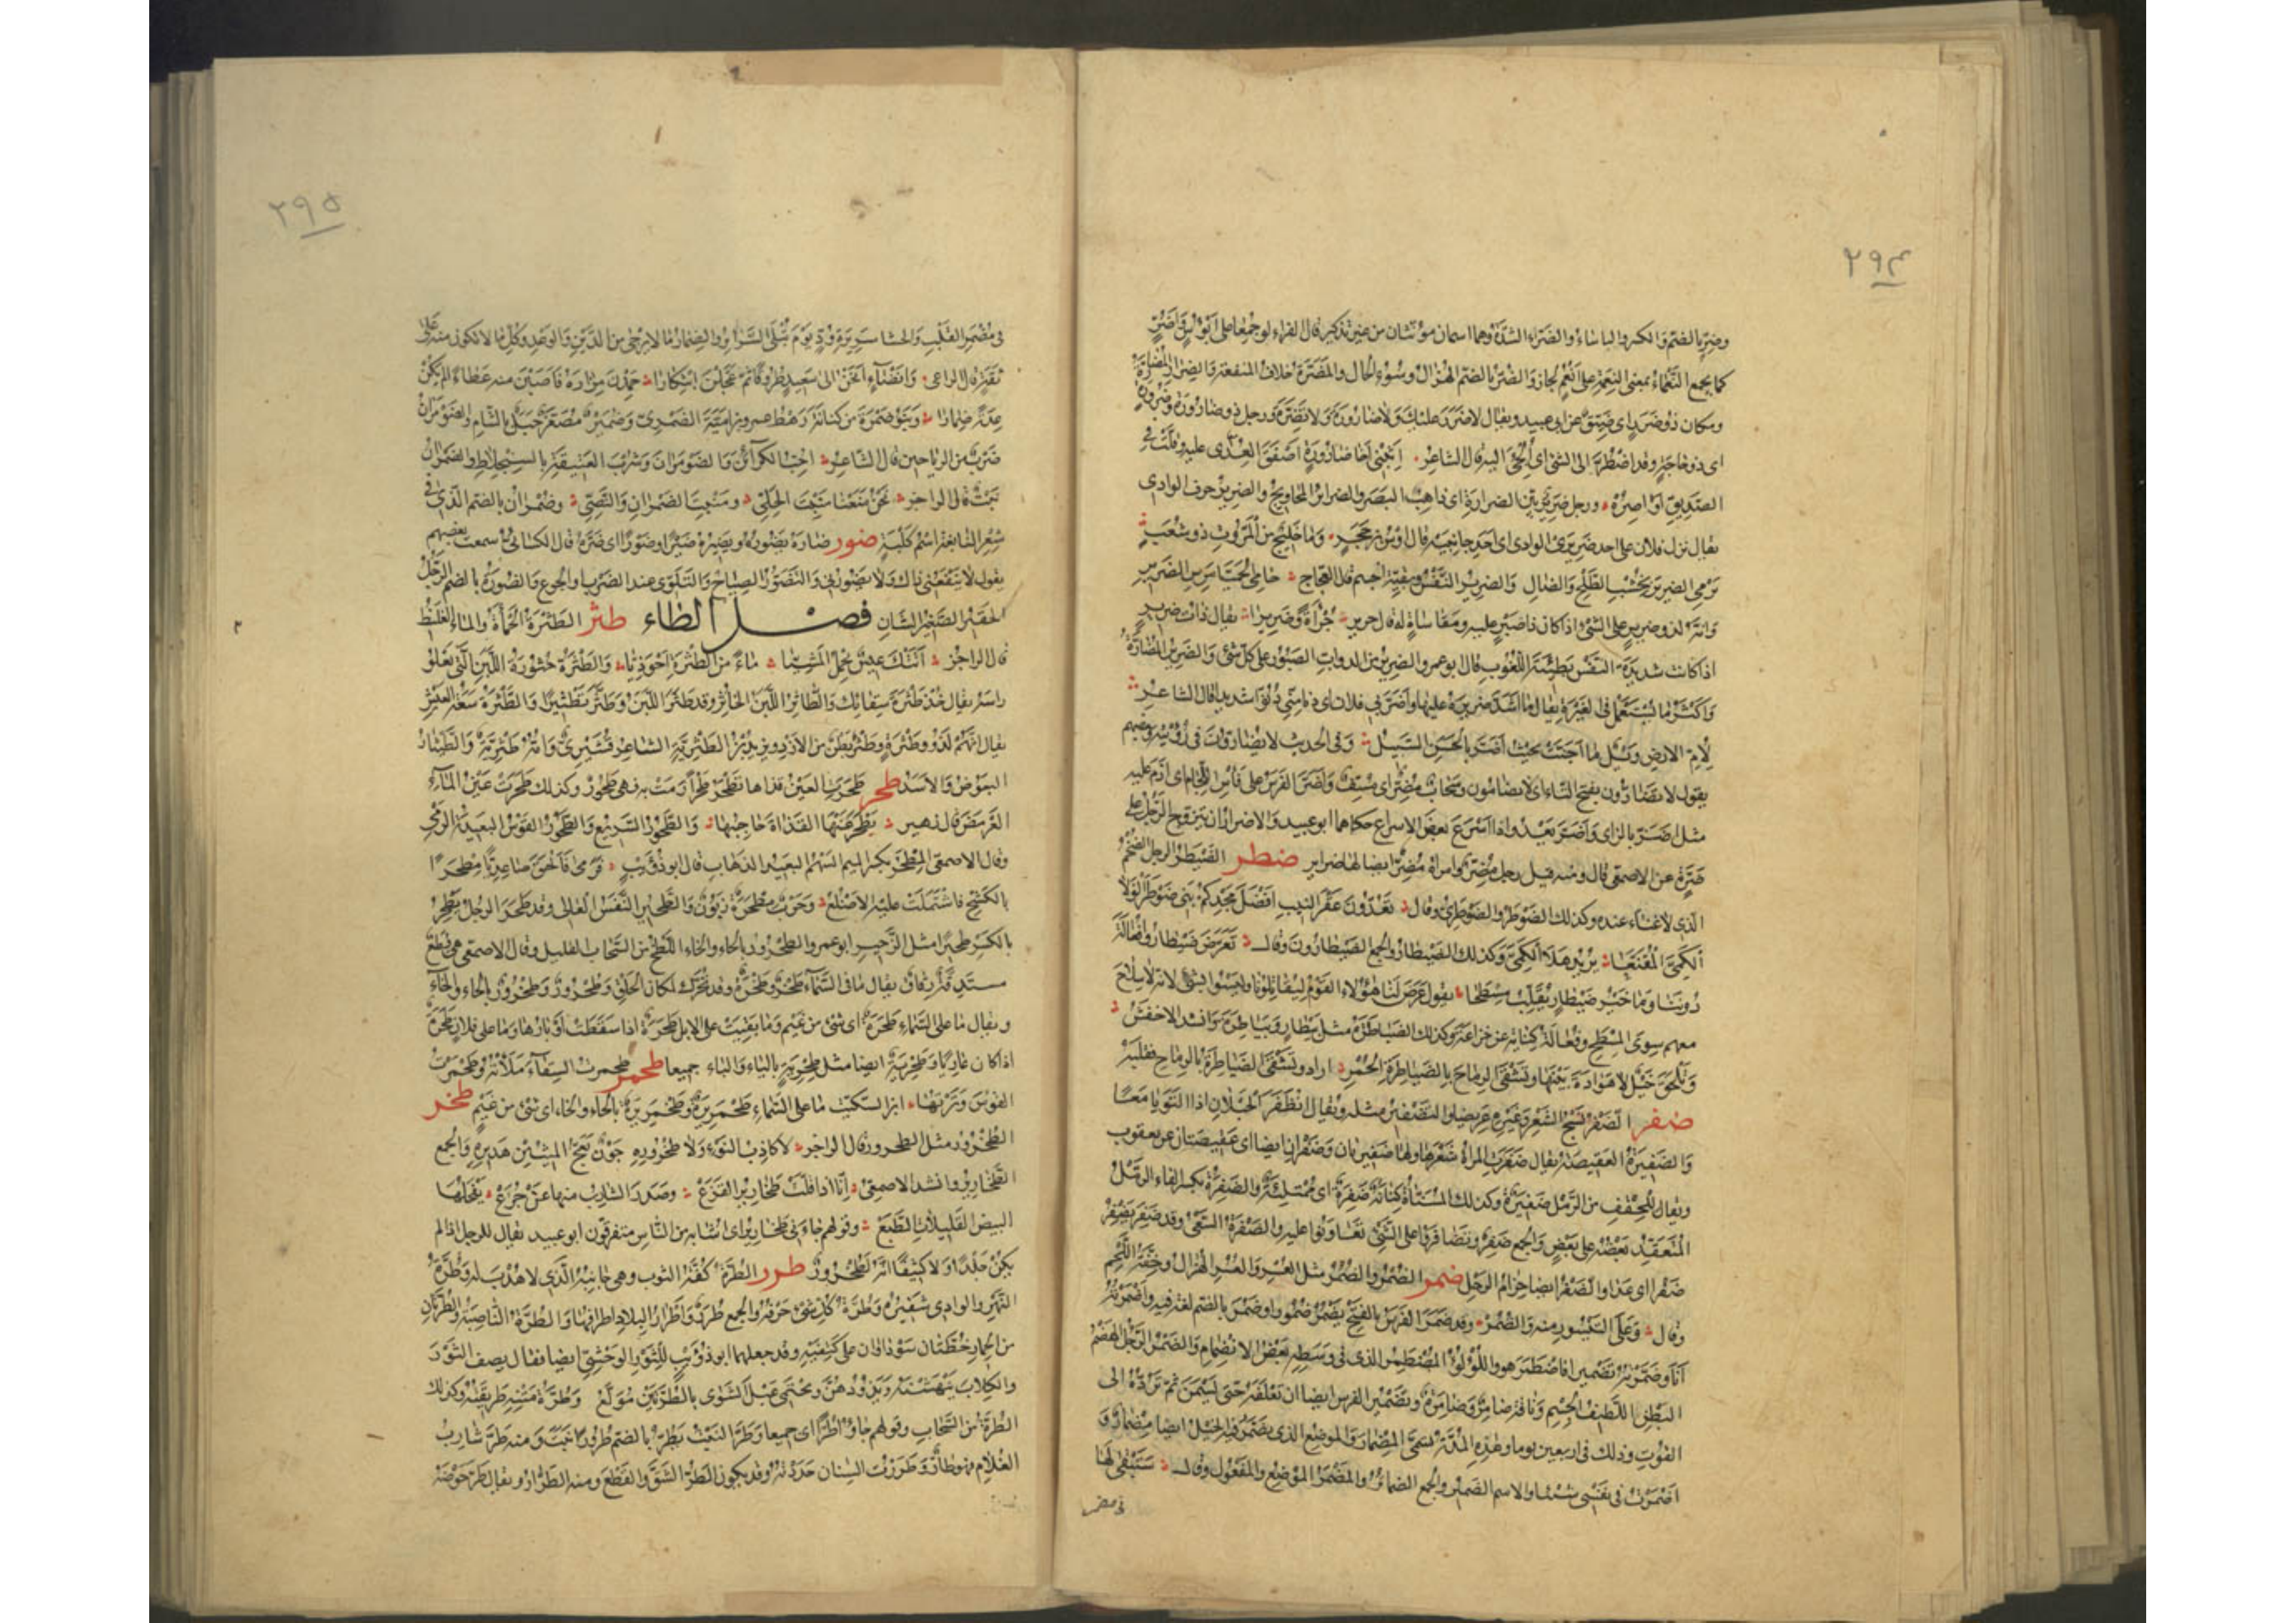 ۲۹۴
وضر بالضم والكسر والباساء والضراء الشدة وهما اسمان مؤنثان من غير تذكير قال الفراء لو جمعا على ابؤس واضر
كما يجمع النعماء بمعنى النعمة على انعم لجاز والضر بالضم الهزال وسوء الحال والمضرة خلاف المنفعة والضرار المضارة
ومكان ذو ضرر اى ضيق عن ابى عبيد ويقال لا ضرر عليك ولا ضارورة ولا تضرة ورجل ذو ضارورة وضرورة
اى ذو حاجة وقد اضطر الى الشئ اى الجئ اليه قال الشاعر اثيبى اخا ضارورة اصفق العدى عليه وقلت فى
الصديق اواصره ورجل ضرير بين الضرارة اى ذاهب البصر والضرائر المحاويج والضرير حرف الوادى
يقال نزل فلان على احد ضريرى الوادى اى احد جانبيه قال اوس بن حجر وما خليج من المروت ذو شعب
يرمى الضرير بخشب الطلح والضال والضرير النفس وبقية الجسم قال العجاج حامى الحميا مرس الضرير
وانه لذو ضرير على الشئ اذا كان ذا صبر عليه ومقاساة له قال جرير جرأة وضريرا يقال ذات ضرير
اذا كانت شديدة النفس بطيئة اللغوب قال ابو عمرو الضرير من الدواب الصبور على كل شئ والضرير المضارة
واكثر ما يستعمل فى الغيرة يقال ما اشد ضريره عليها واضر بى فلان اى دنا منى دنوا شديدا قال الشاعر
لأم الارض ويل ما اجنت بحيث اضر بالحسن السبيل وفى الحديث لا يضارون فى رؤيته وبعضهم
يقول لا تضارون بفتح التاء اى لا تضامون وسحاب مضر اى مسف واضر الفرس على فأس اللجام اى ازم عليه
مثل اضز بالزاى واضر يعدو اذا اسرع بعض الاسراع حكاهما ابو عبيد والاضرار ان يتزوج الرجل على
ضرة عن الاصمعى قال ومنه قيل رجل مضر وامراة مضر ايضا لها ضراير ضطر الضيطر الرجل الضخم
الذى لا غناء عنده وكذلك الضوطر والضوطرى وقال تعدون عقر النيب افضل مجدكم بنى ضوطرى لولا
الكمى المقنعا يريد هلا الكمى وكذلك الضيطار والجمع الضيطارون وقال تعرض ضيطارو فعالة
دوننا وما خير ضيطار يقلب مسطحا يقول عرض لنا هؤلاء القوم ليقاتلونا وليسوا بشئ لانه لا سلاح
معهم سوى المسطح وفعالة كناية عن خزاعة وكذلك الضياطرة مثل بيطار وبياطرة وانشد الاخفش
وتلحق خيل لا هوادة بينها وتشقى الرماح بالضياطرة الحمر اراد وتشقى الضياطرة بالرماح فقلب
ضفر الضفر نسج الشعر وغيره عريضا والتضفير مثله ويقال انضفر الحبلان اذا التويا معا
والضفيرة العقيصة يقال ضفرت المراة شعرها ولها ضفيرتان وضفران ايضا اى عقيصتان عن يعقوب
ويقال للحقف من الرمل ضفيرة وكذلك المسناة كنانة ضفرة اى ممتلئة والضفرة بكسر الفاء الرمل
المنعقد بعضه على بعض والجمع ضفر وتضافروا على الشئ تعاونوا عليه والضفر السعى وقد ضفر يضفر
ضفرا اى عدا والضفر ايضا حزام الرحل ضمر الضمر والضمر مثل العسر والعسر الهزال وخفة اللحم
وقال وعلى التيسور منه والضمر وقد ضمر الفرس بالفتح يضمر ضمورا وضمر بالضم لغة فيه واضمرته
انا وضمرته تضميرا فاضطمر هو واللؤلؤ المضطمر الذى فى وسطه بعض الانضمام والضمر الرجل الهضم
البطن اللطيف الجسم وناقة ضامر وضامرة وتضمير الفرس ايضا ان تعلفه حتى يسمن ثم ترده الى
القوت وذلك فى اربعين يوما وهذه المدة تسمى المضمار والموضع الذى يضمر فيه الخيل ايضا مضمار و
اضمرت فى نفسى شيئا والاسم الضمير والجمع الضمائر والمضمر الموضع والمفعول وقال ستبقى لها
فى مضمر
۲۹۵
فى مضمر القلب والحشا سريرة ود يوم تبلى السرائر والضمار ما لا يرجى من الدين والوعد وكل ما لا تكون منه على
ثقة قال الراعى وانضاء انخن الى سعيد طروقا ثم عجلن ابتكارا حمدن مزاره فاصبن منه عطاء لم يكن
عدة ضمارا وبنو ضمرة من كنانة رهط عمرو بن امية الضمرى وضمير مصغر جبل بالشام والضومران
ضرب من الرياحين قال الشاعر احب الكرائن والضومران وشرب العتيقة بالسنجلاط والضمران
نبت قال الراجز نحن منعنا منبت الحلى ومنبت الضمران والنصى وضمران بالضم الذى فى
شعر النابغة اسم كلبة ضور ضاره يضوره ويضيره ضيرا وضورا اى ضره قال الكسائى سمعت بعضهم
يقول لا ينفعنى ذلك ولا يضورنى والتضور الصياح والتلوى عند الضرب او الجوع والضورة بالضم الرجل
الحقير الصغير الشان فصل الطاء طثر الطثرة الحمأة والماء الغليظ
قال الراجز اتتك عيس تحمل المشيا ماء من الطثرة احوذيا والطثرة خثورة اللبن التى تعلو
راسه يقال خذ طثرة سقائك والطاثر اللبن الخاثر وقد طثر اللبن وطثر تطثيرا والطثرة سعة العيش
يقال انهم لذوو طثرة وطثر بطن من الازد ويزيد بن الطثرية الشاعر قشيرى وامه طثرية والطيثار
البعوض والاسد طحر طحرت العين قذاها تطحر طحرا رمت به فهى طحور وكذلك طحرت عين الماء
العرمض قال زهير يطحر عنها القذاة حاجبها والطحور السريع والطحور القوس البعيدة الرمى
وقال الاصمعى المطحر بكسر الميم السهم البعيد الذهاب قال ابو ذؤيب فرمى فالحق صاعديا مطحرا
بالكشح فاشتملت عليه الاضلع وحرب مطحرة زبون والطحير النفس العالى وقد طحر الرجل يطحر
بالكسر طحيرا مثل الزحير ابو عمرو الطحرور بالحاء والخاء اللطخ من السحاب القليل وقال الاصمعى هى قطع
مستدقة رقاق يقال ما فى السماء طحر وطحرة وقد تحرك لمكان الحلق وطحرور وطخرور بالحاء والخاء
ويقال ما على السماء طحرة اى شئ من غيم وما بقيت على الابل طحرة اذا سقطت اوبارها وما على فلان طحرة
اذا كان عاريا وطحربة ايضا مثل طحرية بالباء والياء جميعا طحمر طحمرت السقاء ملأته وطحمرت
القوس وترتها ابن السكيت ما على السماء طحمريرة وطخمريرة بالحاء والخاء اى شئ من غيم طخر
الطخرور مثل الطحرور قال الراجز لا كاذب النوء ولا طخروره جون تعج الميث من هديره والجمع
الطخارير وانشد الاصمعى انا اذا قلت طخارير القزع وصدر الشارب منها عن جرع نفحلها
البيض القليلات الطبع وقولهم جاءنى طخارير اى اشابة من الناس متفرقون ابو عبيد يقال للرجل اذا لم
يكن جلدا ولا كثيفا انه لطخرور طرر الطرة كفة الثوب وهى جانبه الذى لا هدب له وطرة
النهر والوادى شفيره وطرة كل شئ حرفه والجمع طرر واطرار البلاد اطرافها والطرة الناصية والطرتان
من الحمار خطتان سوداوان على كتفيه وقد جعلهما ابو ذؤيب للثور الوحشى ايضا فقال يصف الثور
والكلاب ينهشنه ويذودهن ويحتمى عبل الشوى بالطرتين مولع وطرة متنه طريقته وكذلك
الطرة من السحاب وقولهم جاؤا طرا اى جميعا وطر النبت يطر بالضم طرورا نبت ومنه طر شارب
الغلام فهو طار وطررت السنان حددته وقد يكون الطر الشق والقطع ومنه الطرار ويقال طر حوضه